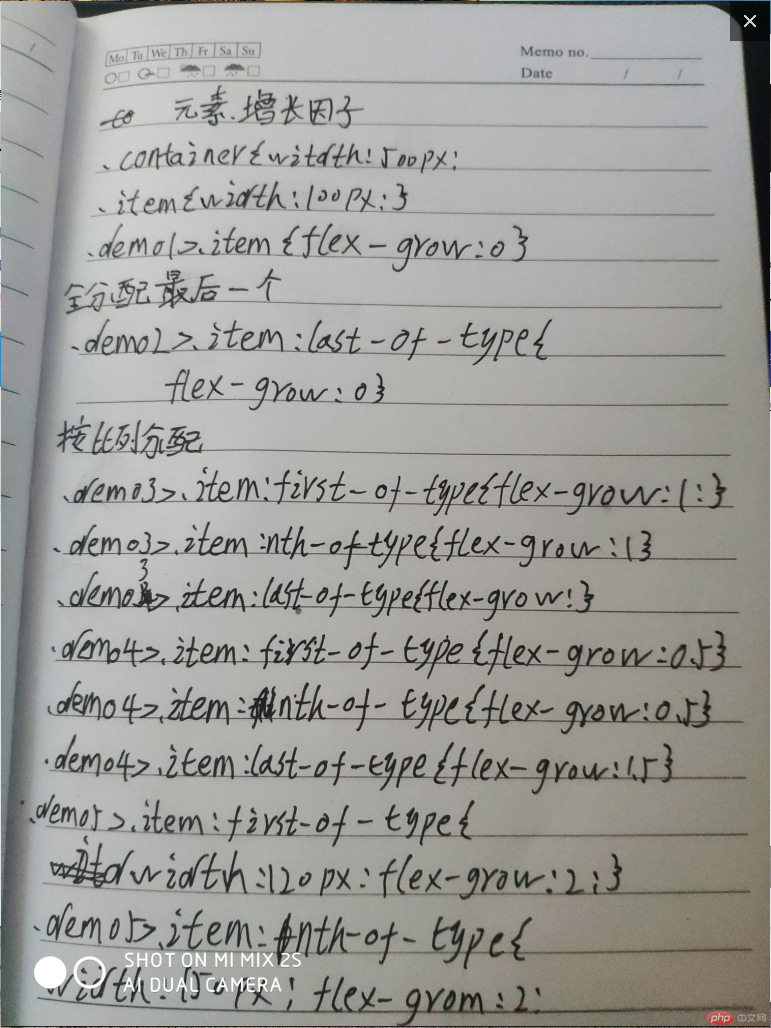 Mo Tu We Th Fr Sa Su
Memo no.
Date / /
元素.增长因子
.container{witdth:500px:
.item{width:100px:}
.demo1>.item{flex-grow:0}
全分配最后一个
.demo2>.item:last-of-type{
flex-grow:0}
按比列分配
.demo3>.item:first-of-type{flex-grow:1:}
.demo3>.item:nth-of-type{flex-grow:1}
.demo3>.item:last-of-type{flex-grow:}
.demo4>.item:first-of-type{flex-grow:0.5}
.demo4>.item:nth-of-type{flex-grow:0.5}
.demo4>.item:last-of-type{flex-grow:1.5}
.demo5>.item:first-of-type{
width:120px:flex-grow:2;}
.demo5>.item:nth-of-type{
width:150px;flex-grom:2:
SHOT ON MI MIX 2S
AI DUAL CAMERA
php 中文网